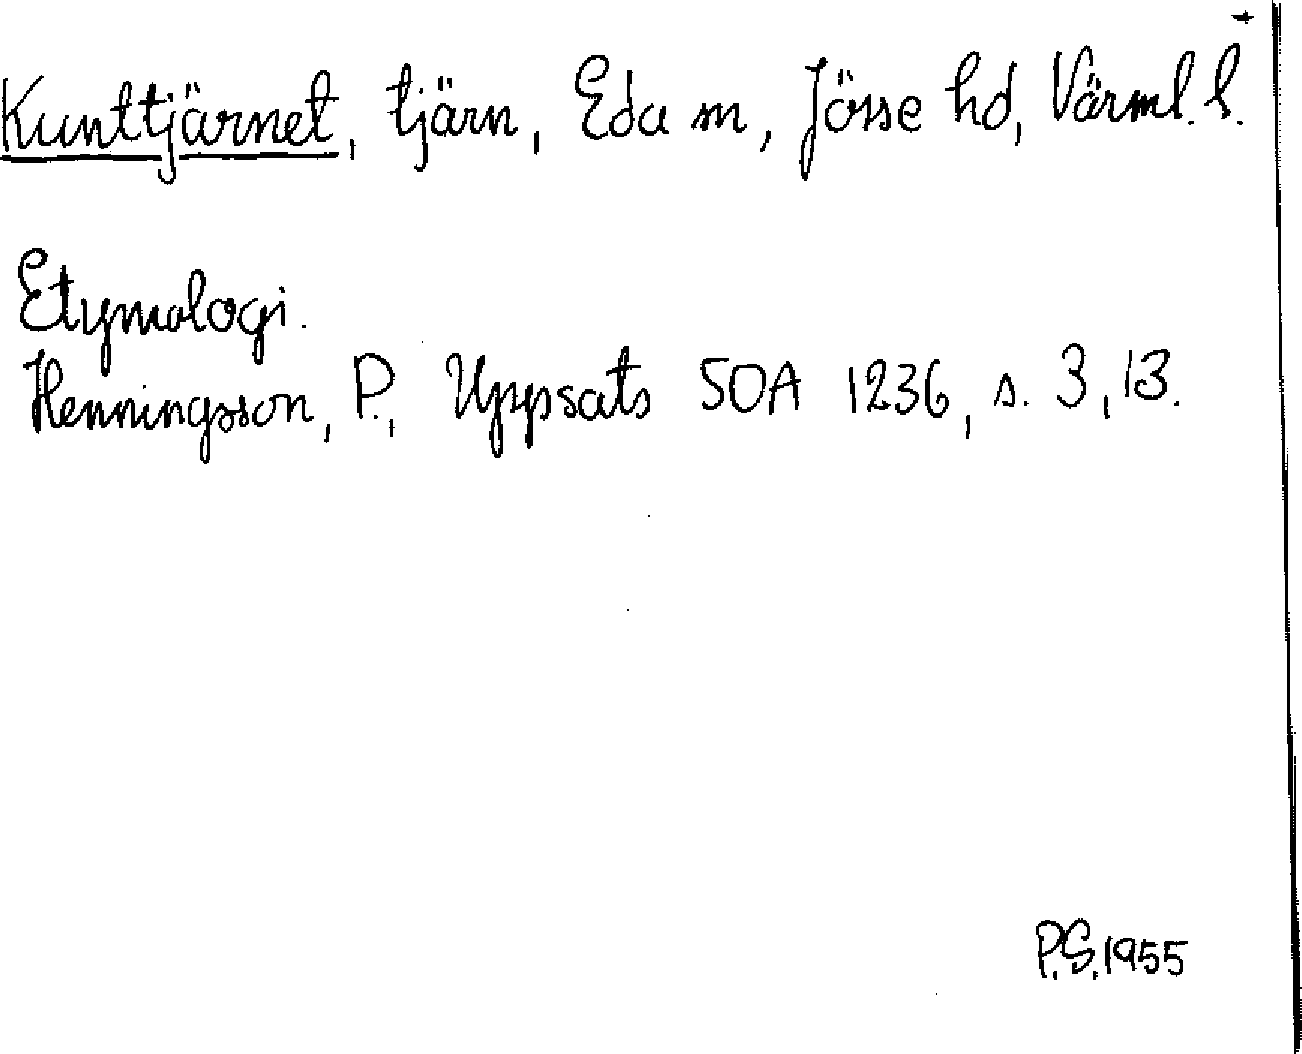 Kunttjärnet, tjärn, Eda sn, Jösse hd, Värml. l.
Etymologi.
Henningsson, P., Uppsats SOA 1236, s. 3, 13.
P.S. 1955